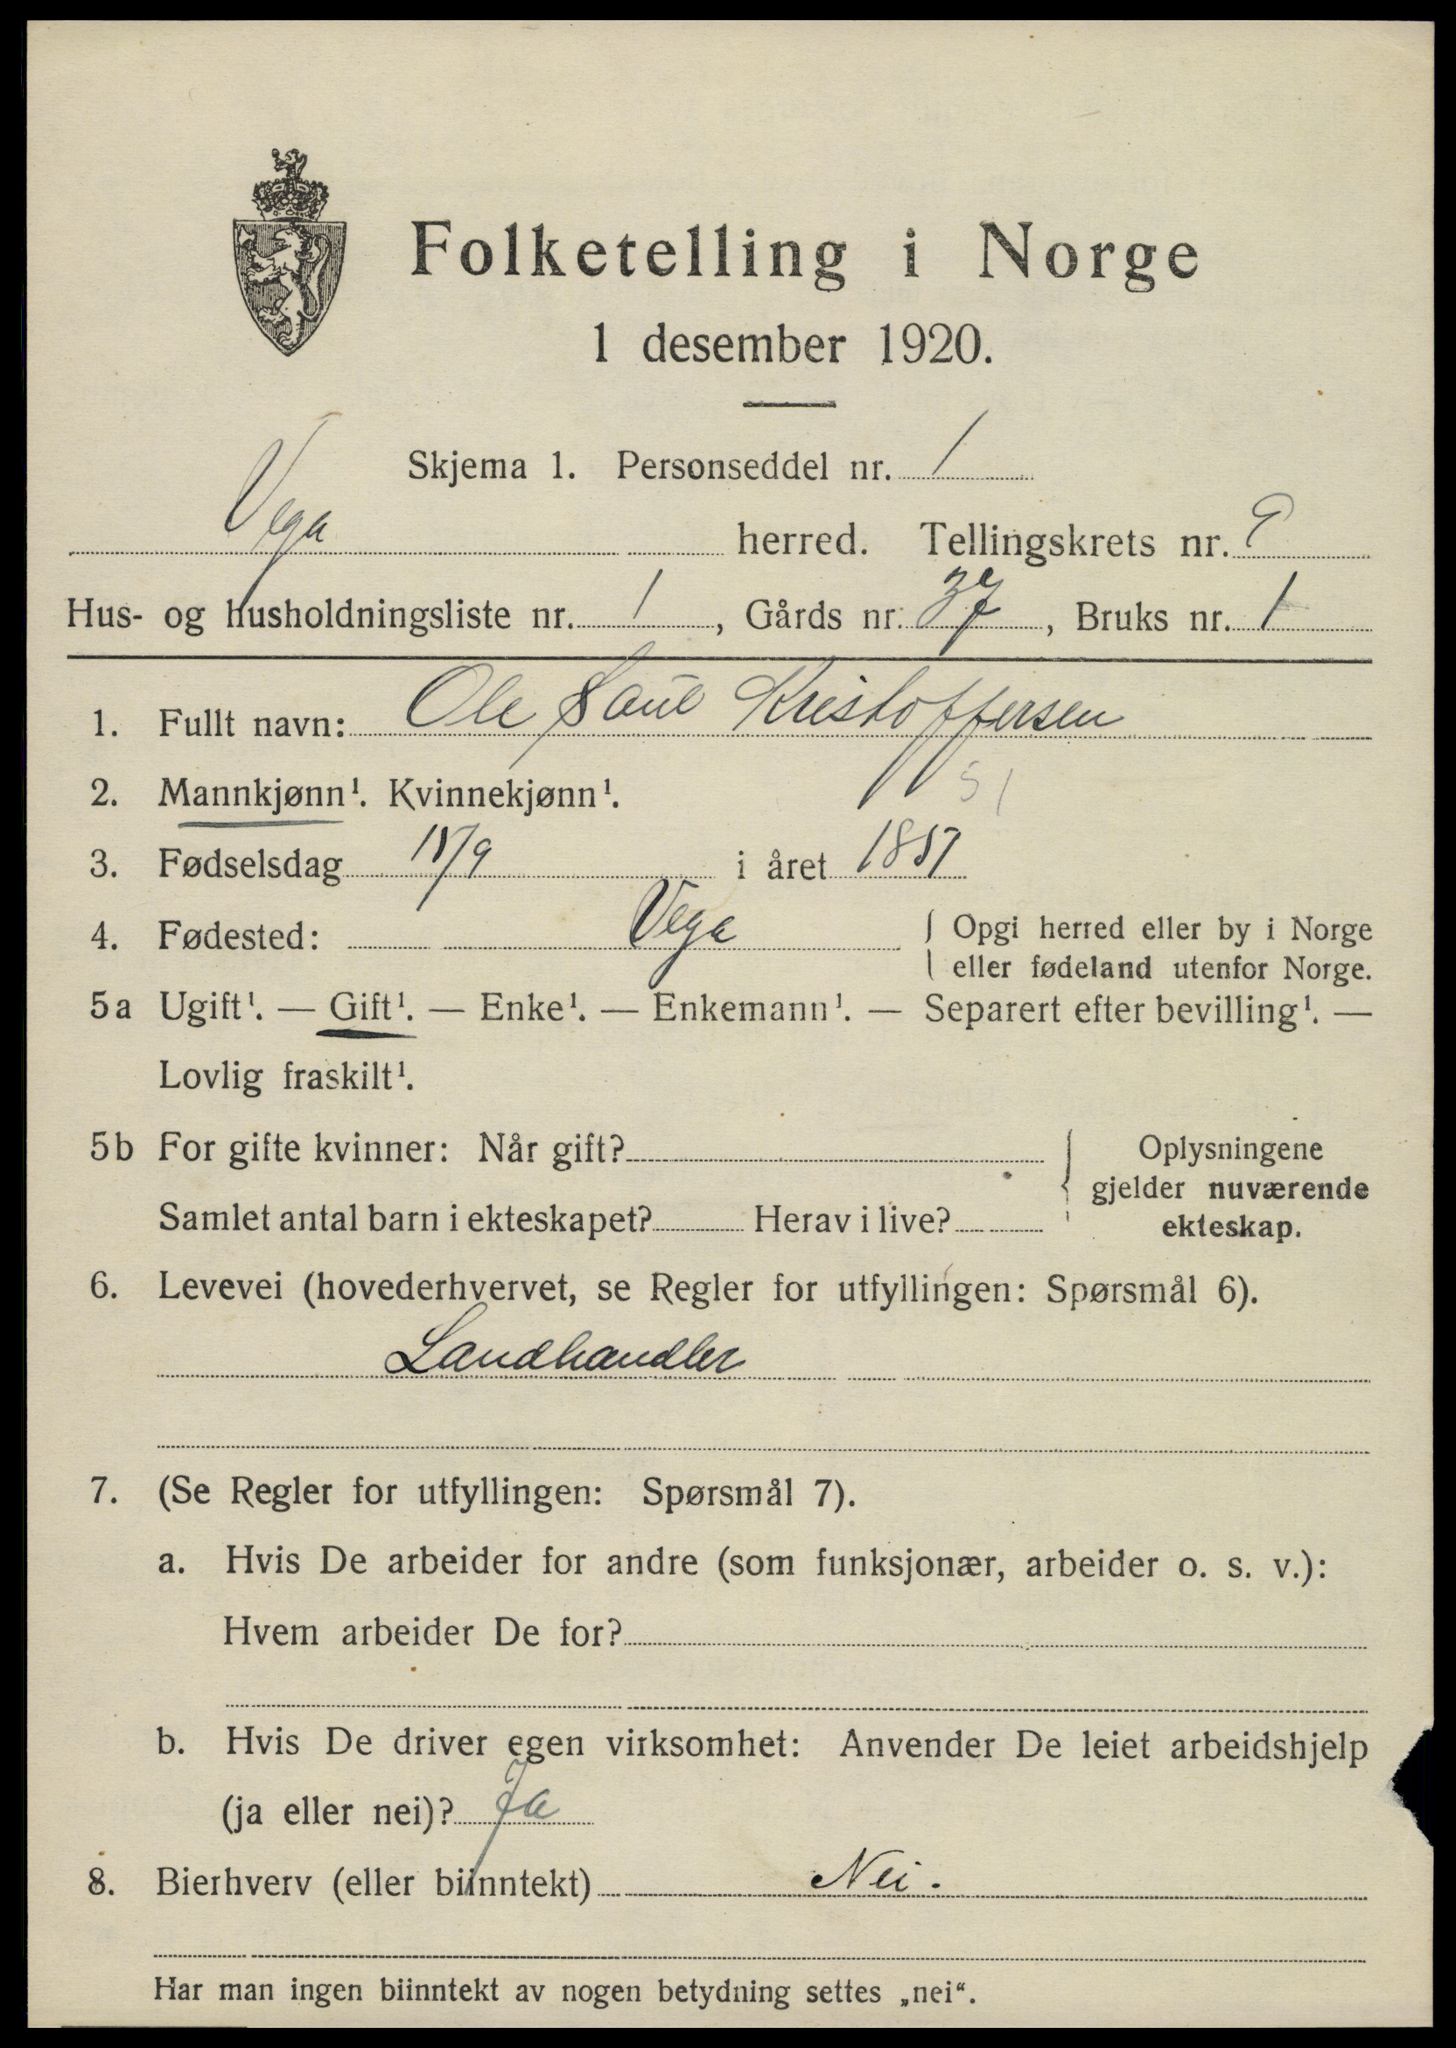 Folketelling i Norge
1 desember 1920.
Skjema 1. Personseddel nr. 1
Vega herred. Tellingskrets nr. 9
Hus- og husholdningsliste nr. 1, Gårds nr. 37, Bruks nr. 1
1. Fullt navn: Ole Kristoffersen
2. Mannkjønn¹. Kvinnekjønn¹.
3. Fødselsdag i året
4. Fødested: Vega { Opgi herred eller by i Norge
eller fødeland utenfor Norge.
5a Ugift¹. — Gift¹. — Enke¹. — Enkemann¹. — Separert efter bevilling¹. —
Lovlig fraskilt¹.
5b For gifte kvinner: Når gift? { Oplysningene
gjelder nuværende
Samlet antal barn i ekteskapet? Herav i live? ekteskap.
6. Levevei (hovederhvervet, se Regler for utfyllingen: Spørsmål 6).
Landhandler
7. (Se Regler for utfyllingen: Spørsmål 7).
a. Hvis De arbeider for andre (som funksjonær, arbeider o. s. v.):
Hvem arbeider De for?
b. Hvis De driver egen virksomhet: Anvender De leiet arbeidshjelp
(ja eller nei)? Ja
8. Bierhverv (eller biinntekt) Nei.
Har man ingen biinntekt av nogen betydning settes „nei“.